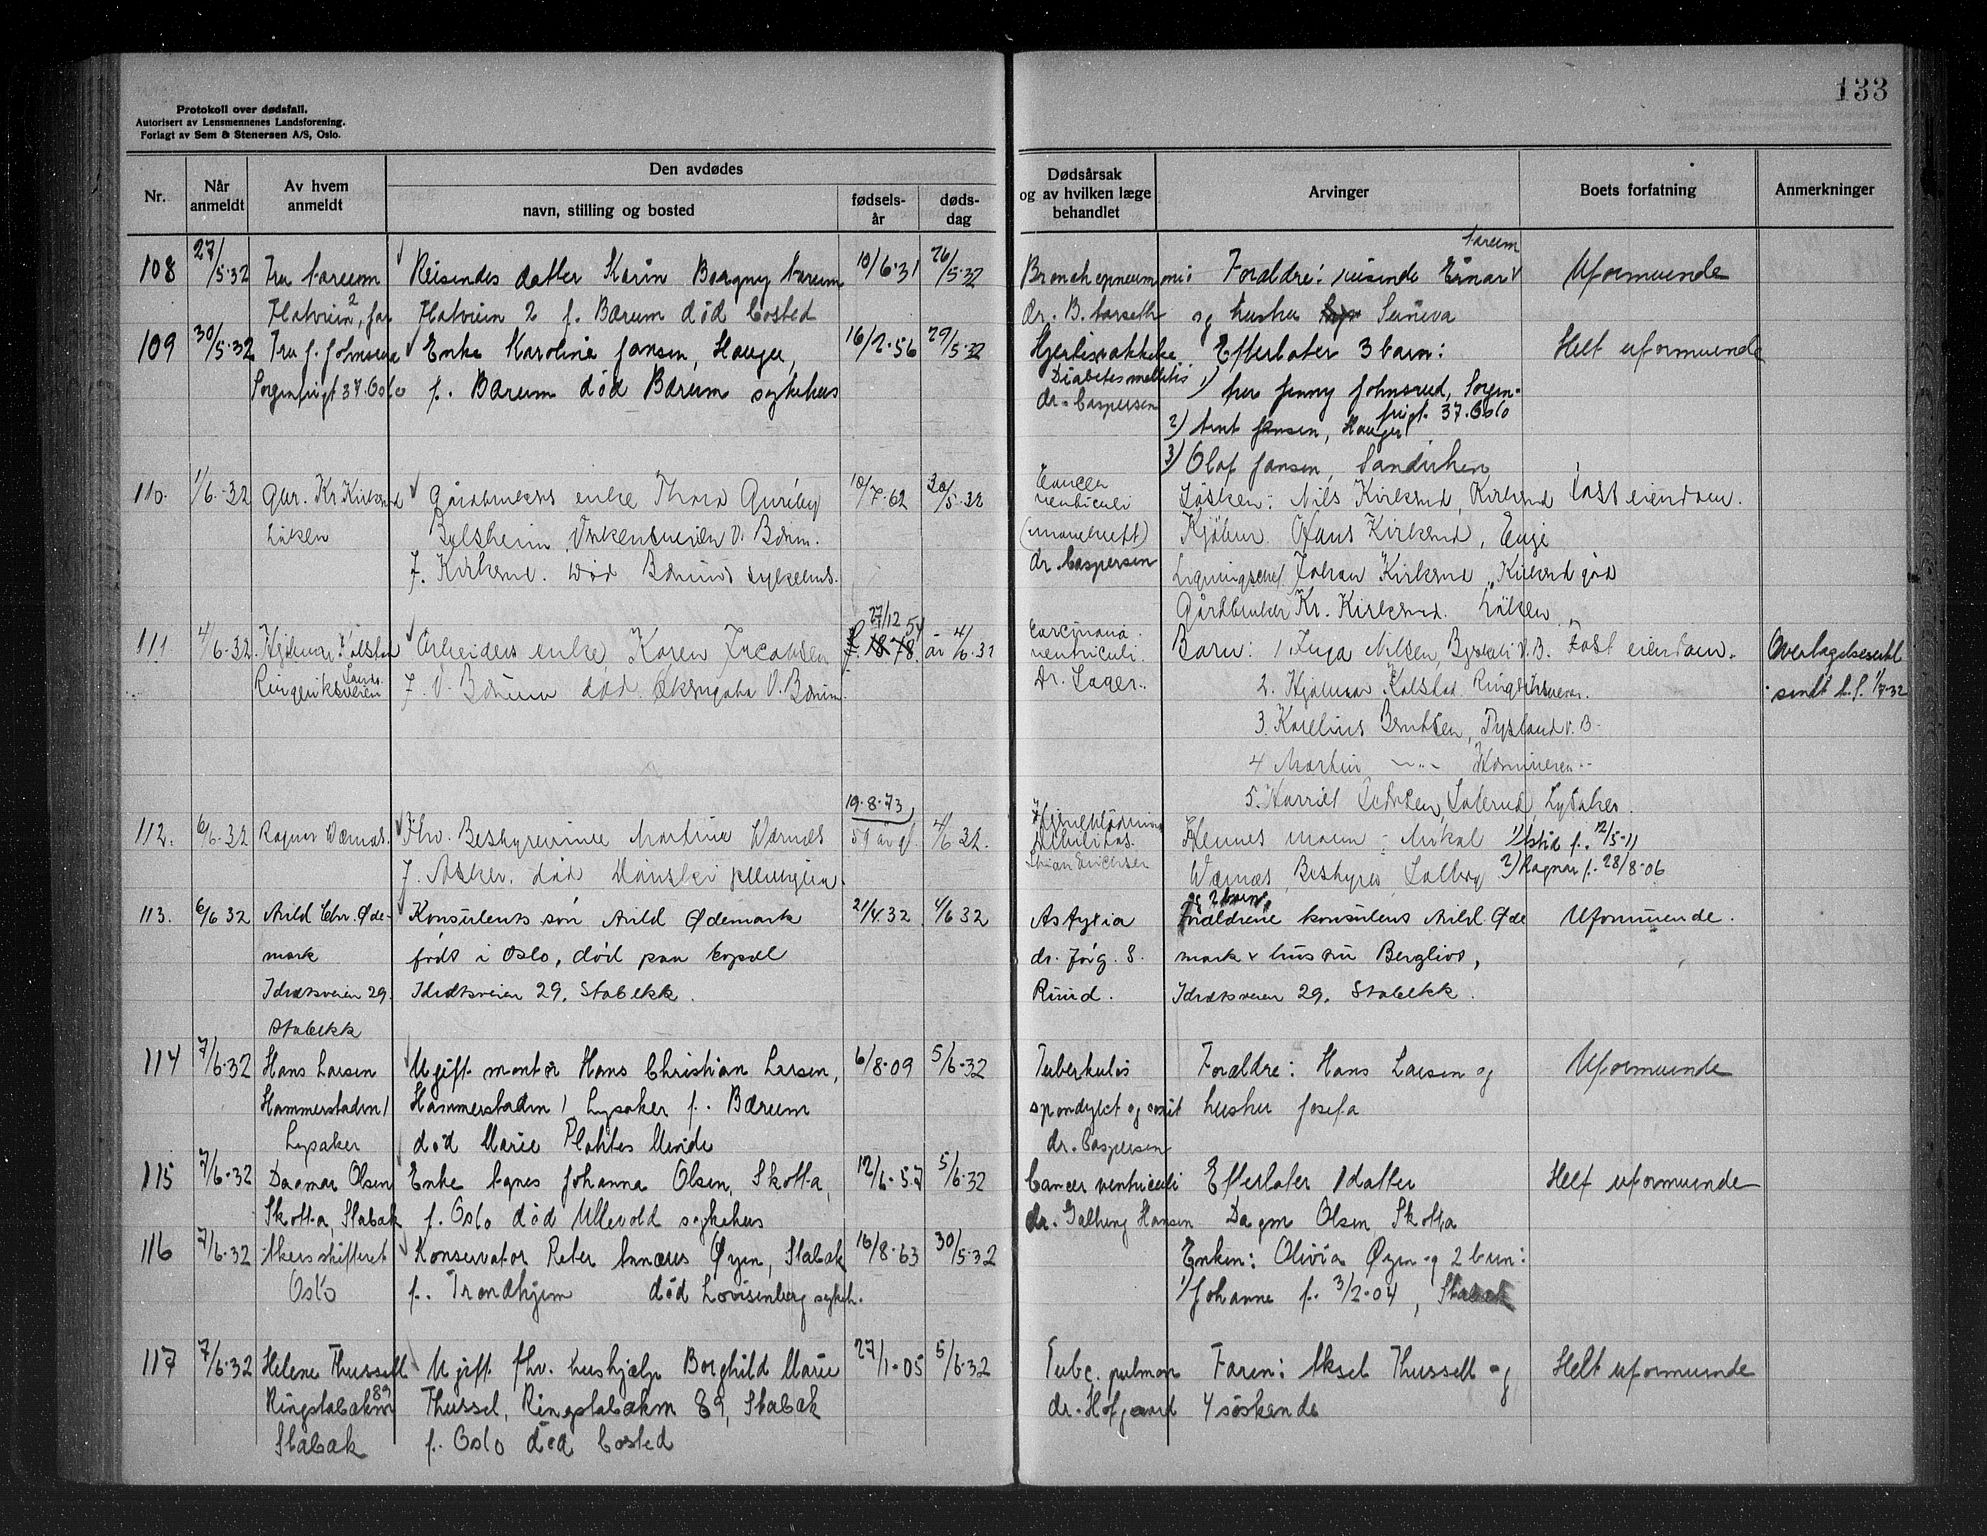 133
Protokoll over dødsfall.
Autorisert av Lensmennenes Landsforening.
Forlagt av Sem & Stenersen A/S, Oslo.
Nr.
Når anmeldt
Av hvem anmeldt
Den avdødes
navn, stilling og bosted
fødsels-år
døds-dag
Dødsårsak og av hvilken læge behandlet
Arvinger
Boets forfatning
Anmerkninger
108 27/5-32 Fru Flatveien 2, far
Reisendes datter Karin Borgny
Flatveien 2 f. Bærum død bosted
10/6-31 26/5-32
Bronchopneumoni
dr. B.
Foreldre: reisende Einar
og hustru Suneva
Uformuende
109 30/5-32 Fru J. Johnsrud
Sorgenfrigt 37. Oslo
Enke Karoline Jansen, Hauger,
f. Bærum død Bærum sykehus
16/2-56 29/5-32
Diabetes mellitis
dr. Caspersen
Efterlater 3 barn:
1) fru Jenny Johnsrud, Sorgen-
frigt. 37. Oslo
2) Arnt Jansen, Hauger
3) Olaf Jansen, Sandviken
Helt uformuende
110. 1/6-32 Gbr. Kr Kirkerud
Løken
Gårdbrukers enke Thora
V. Bærum.
f. Kirkerud. død Bærums sykehus.
10/7-62 30/5-32
Cancer
ventriculi
(mavekreft)
dr. Caspersen
Søsken: Nils Kirkerud, Kirkerud
Kjøbm. Hans Kirkerud,
Ligningschef Johan Kirkerud
Gårdbruker Kr. Kirkerud. Løken
Fast eiendom.
111. 4/6-32 Hjalmar Kolstad
Ringeriksveien
Arbeiders enke Karen Jacobsen
f. V. Bærum død V. Bærum
27/12 54
år 4/6-32
Carcinoma
ventriculi.
Dr. Lager.
Barn: 1 Inga Nilsen, V.B.
2. Hjalmar Kolstad Ringeriksveien.
3. Karelius Berntsen, V. B-
4 Martin —"—
5. Harriet Lysaker.
Fast eiendom.
sendt 1/7-32
112. 6/6-32 Ragnar Wærnæs.
Fhv. Bestyrerinne Martine Wærnæs
f. Asker. død
19-8-73
59 år gl. 4/6 32.
Hjerneblødning
Hennes mann: Mikal
Wærnæs, Bestyrer, Solberg
og 2 barn,
1) Astrid f. 12/5-11
2) Ragnar f. 28/8-06
113. 6/6 32 Arild Chr. Øde-
mark
Idrætsveien 29.
Stabekk
Konsulents søn Arild Ødemark
født i Oslo, død paa bopæl
Idrætsveien 29. Stabekk.
21/4.32 4/6 32
Asfyxia
dr. Jørg. S.
Ruud.
Foreldrene konsulent Arild Øde
mark + hustru Bergliot,
Idrætsveien 29, Stabekk.
Uformuende.
114 7/6-32 Hans Larsen
Hammerstaden 1
Lysaker
Ugift montør Hans Christian Larsen,
Hammerstaden 1 Lysaker f. Bærum
død Marie Plahtes Minde
6/8-09 5/6-32
Tuberkuløs
spondylit og coxit
dr. Caspersen
Foreldre: Hans Larsen og
hustru Josefa
Uformuende
115 7/6-32 Dagmar Olsen
Skotta, Stabæk
Enke Agnes Johanna Olsen, Skotta,
f. Oslo død Ullevold sykehus
12/6-57 5/6-32
Cancer ventriculi
dr. Hansen
Efterlater 1 datter
Dagm Olsen Skotta
Helt uformuende
116 7/6-32 Akers skifteret
Oslo
Konservator Peter Annæus Øyen, Stabæk
f. Trondhjem død Lovisenberg sykeh.
16/8-63 30/5-32
Enken: Olivia Øyen og 2 barn:
1) Johanne f. 3/2-04, Stabæk
117 7/6-32 Helene Thussell
Ringstabækvn 89
Stabæk
Ugift fhv. hushjelp Borghild Marie
Thussel, Ringstabækvn 89, Stabæk
f. Oslo død bosted
27/1-05 5/6-32
Tubc. pulmon
dr. Hofgaard
Faren: Aksel Thussell og
4 søskende
Helt uformuende